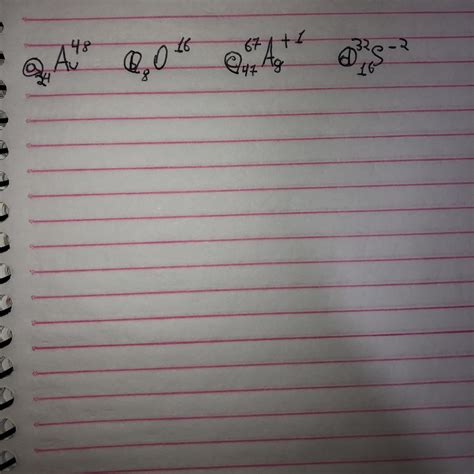 a) ₂₄Au⁴⁸ b) ₈O¹⁶ c) ⁶⁷₄₇Ag⁺¹ d) ³²₁₆S⁻²